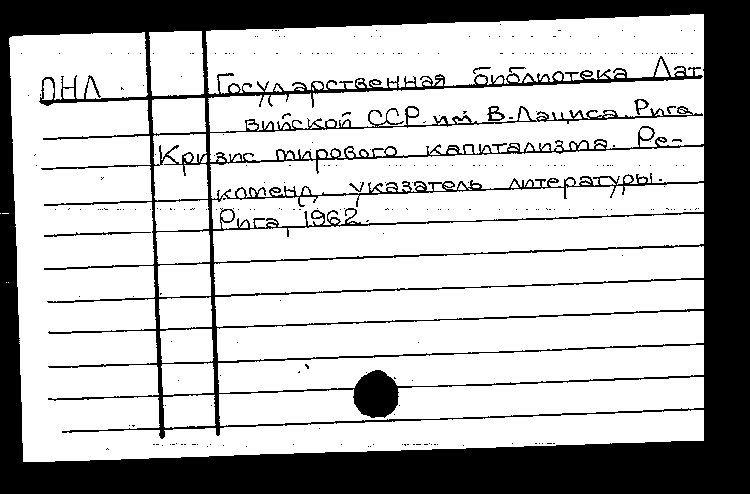 ПНЛ Государственная библиотека Лат
вийской ССР им. В. Лациса. Рига.
Кризис мирового капитализма. Ре-
коменд. указатель литературы.
Рига, 1962.